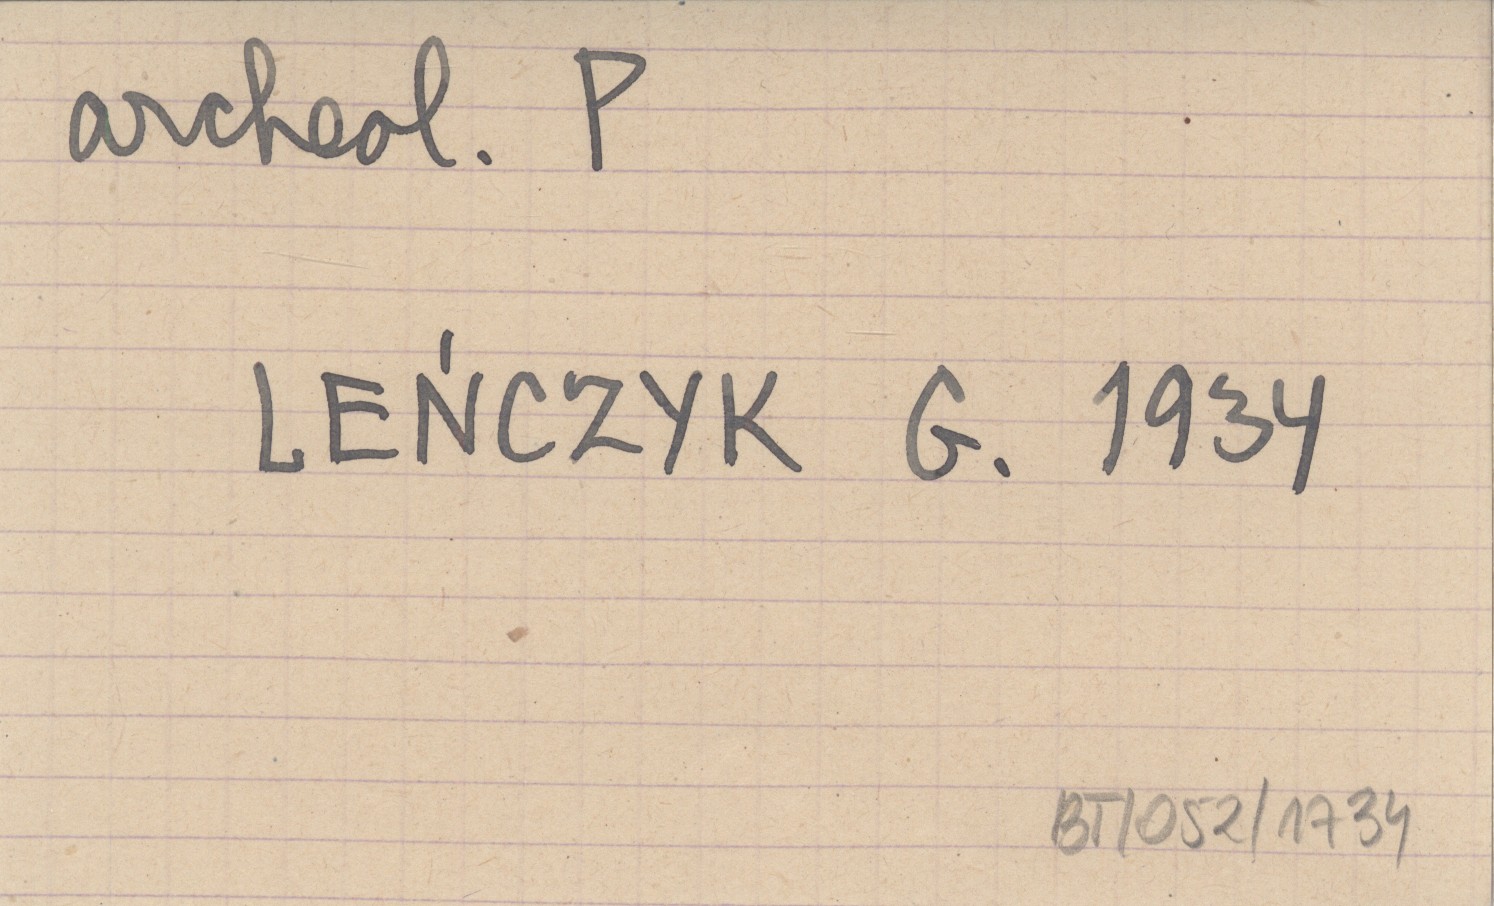 archeol. P
LEŃCZYK G. 1934
BT/052/1734